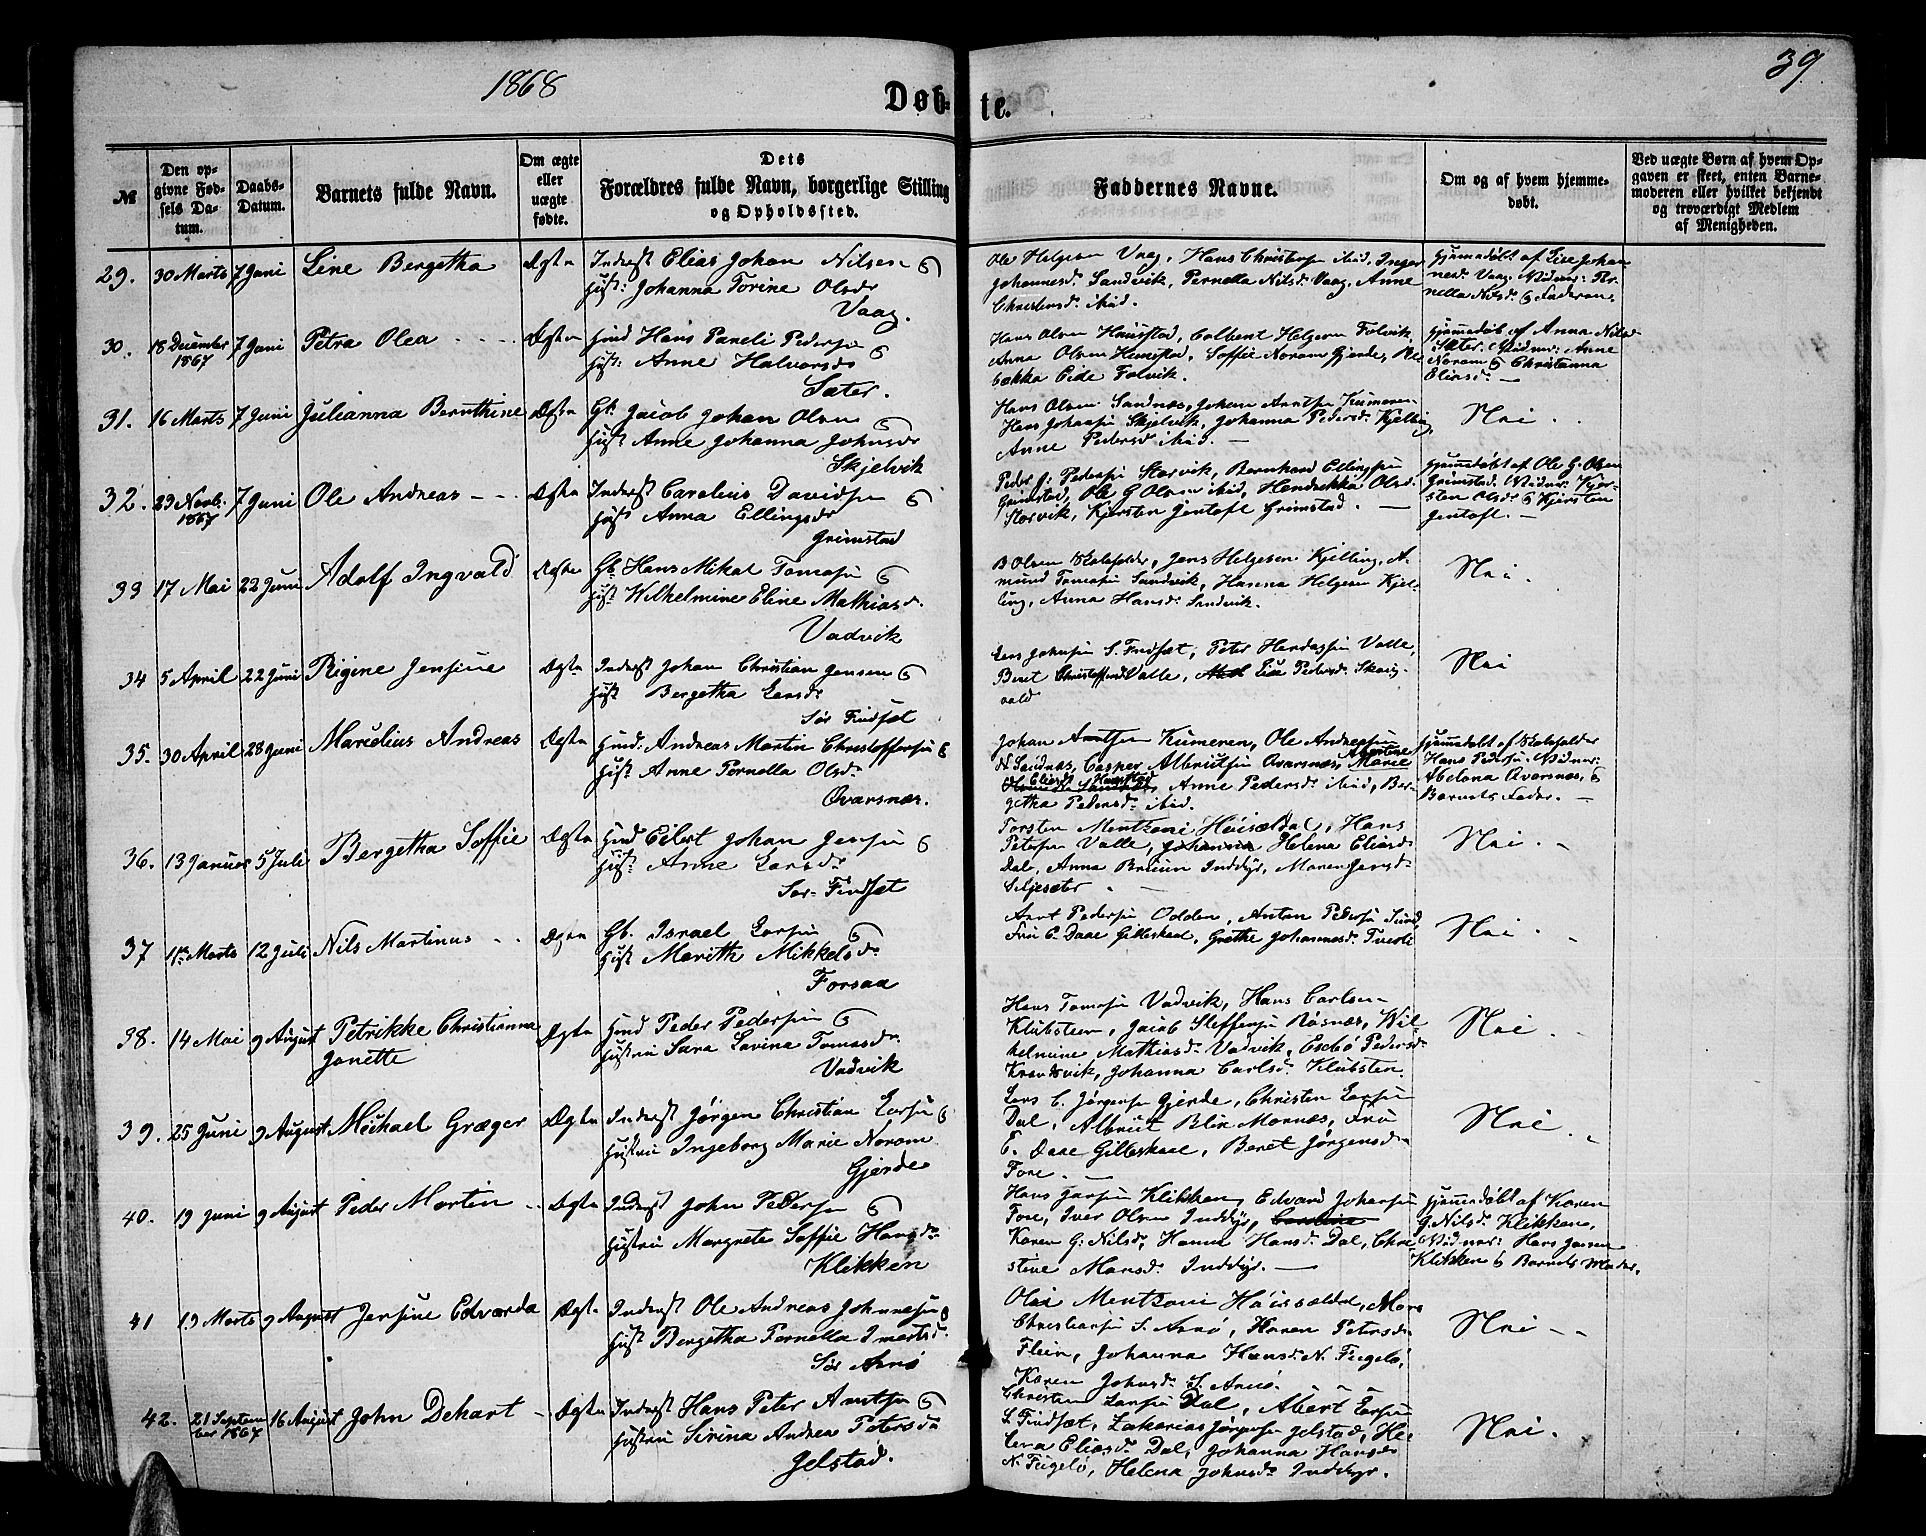 1868
39.
Døb- te.
№
Den op-
givne Fød-
sels Da-
tum.
Daabs-
Datum.
Barnets fulde Navn.
Om ægte
eller
uægte
fødte.
Dets
Forældres fulde Navn, borgerlige Stilling
og Opholdssted.
Faddernes Navne.
Om og af hvem hjemme-
døbt.
Ved uægte Børn af hvem Op-
gaven er skeet, enten Barne-
moderen eller hvilket bekjendt
og troværdigt Medlem
af Menigheden.
29. 30 Marts 7 Juni Line Bergetha Ægte Inderst Elias Johan Nilsen
Hust: Johanna Torine Olsdr
Vaag.
Ole Helgesen Vaag, Hans Christophe ibid, Inger
Johannesd. Sandvik, Pernella Nilsd. Vaag, Anne
Christensd. ibid.
hjemmedøbt af Lise Johan
nesd. Vaag. Vidner: Per-
nella Nilsd. & Faderen
30. 18 December 7 Juni Petra Olea Ægte Huusd Hans Paneli Pedersen
1867
Hust: Anne Halvorsdr
Sæter.
Hans Olsen Haugstad, Colbent Helgesen Følvik
Anna Olsen Haugstad, Soffie Norum Gjerde, Re-
bekka Eide Følvik.
hjemmedøb af Anna Nilsd
Sæter. Vidner: Anne
Norum & Christianna
Eliasd. —
31. 16 Marts 7 Juni Julianna Bernthine Ægte Gb. Jacob Johan Olsen
Hust Anne Johanna Johnsdr
Skjelvik
Hans Olsen Sandnæs, Johan Arntsen Kumeren
Hans Johansen Skjelvik, Johanna Pedersd. Kjelling,
Anne Pedersd. ibid. —
Nei.
32. 23 Novb. 7 Juni Ole Andreas Ægte Inderst Carelius Davidsen
1867
Hust Anna Ellingsdr
Grimstad
Peder J. Pedersen Storvik, Bernhard Ellingsen
Grimstad, Ole G Olsen ibid, Hendrikka Olsd.
Storvik, Kjersten Jentoft Grimstad. —
hjemmedøbt af Ole G. Olsen
Grimstad. Vidner: Kjer-
sten Olsd. & Kjersten
Jentoft. —
33 17 Mai 22 Juni Adolf Ingvald Ægte Gb. Hans Mikal Tomasen
Hust Wilhelmine Eline Mathiasd.
Vadvik
B Olsen Skoleholder, Jens Helgesen Kjelling, A-
mund Tomasen Sandvik, Hanna Helgesen Kjel-
ling, Anna Hansd. Sandvik.
Nei.
34 5 April 22 Juni Rigine Jensine Ægte Inderst Johan Christian Jensen
Hust Bergetha Larsdr
Sør Findset
Lars Johnsen S. Findset, Peter Valle,
Beret Christoffersd Valle, Lisa Pedersd. Skaug-
vold
Nei
35. 30 April 28 Juni Marcelius Andreas Ægte Huusd. Andreas Martin Christoffersen
Hust Anne Pernella Olsd.
Qvarsnæs.
Johan Arntsen Kumeren, Ole Andreassen
N Sandnæs, Casper Albrigtsen Qvarsnæs, Albertine Marie
Eliasd. Haugstad, Anne Pedersd. ibid, Ber-
getha Pedersd. ibid.
hjemmedøbt af Skoleholder
Hans Pedersen. Vidner:
Abelona Qvarsnæs, &
Barnets Fader. —
36. 13 Januar 5 Juli Bergetha Soffie Ægte Huusd Eilert Johan Jensen
Hust. Anne Larsdr
Sør-Findset
Torsten Mentzoni Hauseldal, Hans
Petersen Valle, Johanna Helena Eliasd.
Dal, Anna Bruun Inddyr, Maren Jensd.
Seljesæter
Nei.
37 11 Marts 12 Juli Nils Martinus Ægte Gb. Israel Larsen
Hust Marith Mikkelsd.
Forsaa
Arnt Pedersen Odden, Anton Pedersen Sund,
Fru E. Daae Gilleskaal, Grethe Johannesd. Tverli
Nei.
38. 14 Mai 9 August Petrikke Christianna Ægte Huusd Peder Pedersen
Janette
Hustru Sara Lovina Tomasd.
Vadvik
Hans Tomasen Vadvik, Hans Carlsen
Klubsteen, Jacob Steffensen Røsnæs, Wil-
helmine Mathiasd. Vadvik, Pedersd.
Johanna Carlsd. Klubsten.
Nei.
39. 25 Juni 9 August Michael Græger Ægte Inderst Jørgen Christian Larsen
Hustru Ingeborg Marie Norum
Gjerde
Lars C. Jørgensen Gjerde, Christen Larsen
Dal, Albrigt Blix Mornæs, Fru
E. Daae Gilleskaal, Beret Jørgensd.
Fore. —
Nei.
40. 19 Juni 9 August Peder Martin Ægte Inderst John Pedersen
Hustru Margrete Soffie Hansd.
Klikken
Hans Jansen Klikken, Edvard Johansen
Fore, Iver Olsen Inddyr, Caroline
Karen G. Nilsd., Hanna Hansd. Dal, Chri-
stine Monsd. Inddyr. —
hjemmedøbt af Karen
G. Nilsd. Klikken,
Vidner: Hans Jansen
Klikken & Barnets Moder.
41 19 Marts 9 August Jensine Edvarda Ægte Inderst Ole Andreas Johnnesen
Hust Bergetha Pernella
Sør Arnø
Olai Mentzoni Hauseldal,
Christiansen S. Arnø, Maren Petersd.
Flein, Johanna Hansd. N. Fugelø,
Karen Johnsd. S. Arnø.
Nei —
42. 21 Septem 16 August John Dehart Ægte Inderst Hans Peter Arntsen
ber 1867
Hustru Sirina Andrea Petersd.
Gjelstad.
Christen Larsen Dal, Albert Larsen
S. Findset, Zakarias Jørgensen Gjelstad, He-
lena Eliasd. Dal, Johanna Hansd.
N. Fugelø, Helena Johnsd. Inddyr.
Nei.